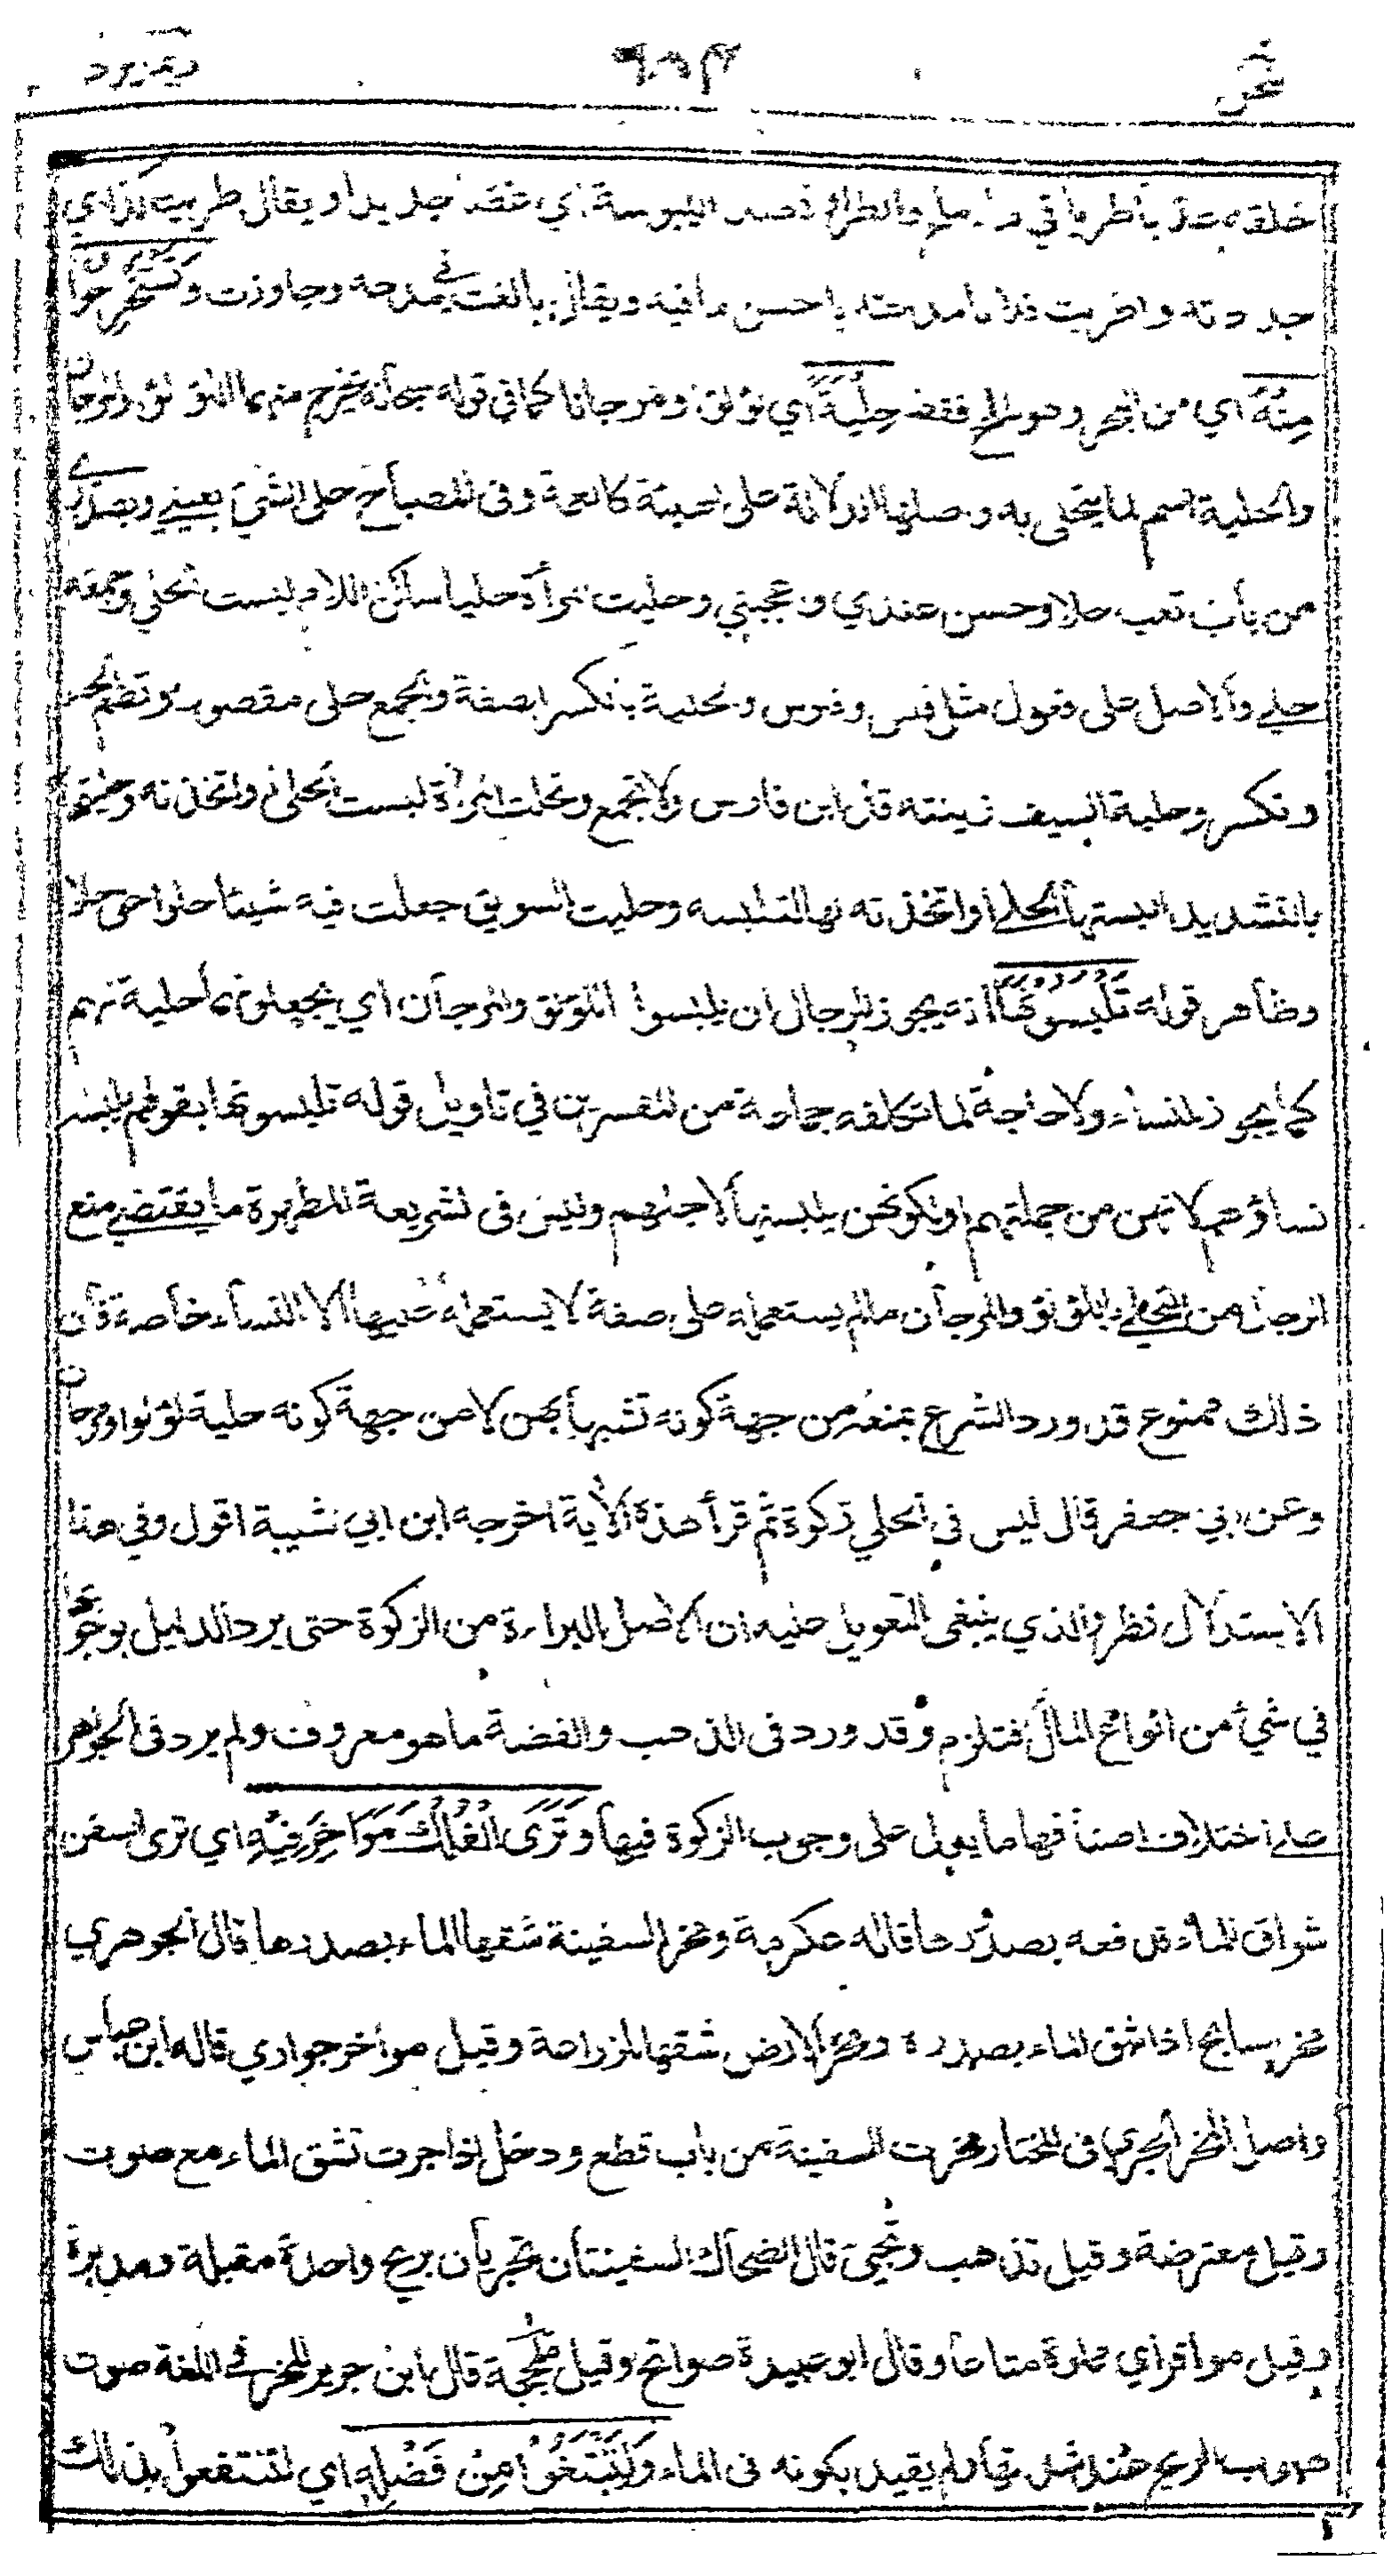 نحل
خلقه عذبا طريا في ماء ملح والطراوة ضد اليبوسة اي غضا جديدا ويقال طريت كذا اي
جددته واطريت فلانا مدحته باحسن ما فيه ويقال بالغت في مدحه وجاوزت وَتَسْتَخْرِجُوا
مِنْهُ اي من البحر وهو الملح فقط حِلْيَةً اي لؤلؤا ومرجانا كما في قوله سبحانه يخرج منهما اللؤلؤ والمرجان
والحلية اسم لما يتحلى به واصلها الدلالة على الهيئة كالعمة وفى المصباح حلى الشيء بعيني وبصدري
من باب تعب حلاوة حسن عندي واعجبني وحليت المرأة حليا ساكن اللام لبست الحلي وجمعه
حلي والاصل على فعول مثل فلس وفلوس والحلية بالكسر الصفة والجمع حلى مقصور وتضم الحاء
وتكسر وحلية السيف زينته قال ابن فارس ولا تجمع وتحلت المرأة لبست الحلي او اتخذته وحليتها
بالتشديد البستها الحلي او اتخذته لها لتلبسه وحليت السويق جعلت فيه شيئا حلوا حتى حلا
وظاهر قوله تَلْبَسُونَهَا انه يجوز للرجال ان يلبسوا اللؤلؤ والمرجان اي يجعلونها حلية لهم
كما يجوز للنساء ولا حاجة لما تكلفه جماعة من المفسرين في تاويل قوله تلبسونها بقولهم تلبسها
نساؤهم لانهن من جملتهم او لكونهن يلبسنها لاجلهم وليس فى الشريعة المطهرة ما يقتضي منع
الرجال من التحلي باللؤلؤ والمرجان ما لم يستعمله على صفة لا يستعمله عليها الا النساء خاصة فان
ذلك ممنوع قد ورد الشرع بمنعه من جهة كونه تشبها بهن لا من جهة كونه حلية لؤلؤ او مرجان
وعن ابي جعفر قال ليس في الحلي زكوة ثم قرأ هذه الآية اخرجه ابن ابي شيبة اقول وفي هذا
الاستدلال نظر والذي ينبغى التعويل عليه ان الاصل البراءة من الزكوة حتى يرد الدليل بوجوبها
في شيء من انواع المال فتلزم وقد ورد فى الذهب والفضة ما هو معروف ولم يرد فى الجواهر
على اختلاف اصنافها ما يدل على وجوب الزكوة فيها وَتَرَى الْفُلْكَ مَوَاخِرَ فِيهِ اي ترى السفن
شواق للماء تدفعه بصدرها قاله عكرمة ومخر السفينة شقها الماء بصدرها قال الجوهري
مخر السابح اذا شق الماء بصدره ومخر الارض شقها للزراعة وقيل مواخر جواري قاله ابن عباس
واصل المخر الجري وفى المختار مخرت السفينة من باب قطع ودخل اذا جرت تشق الماء مع صوت
وقيل معترضة وقيل تذهب وتجيء قال الضحاك السفينتان تجريان بريح واحدة مقبلة ومدبرة
وقيل مواقر اي مملوة متاعا وقال ابو عبيدة صوائح وقيل ملججة قال ابن جرير المخر في اللغة صوت
هبوب الريح عند شدتها ولم يقيد بكونه فى الماء وَلِتَبْتَغُوا مِنْ فَضْلِهِ اي لتنتفعوا بذلك